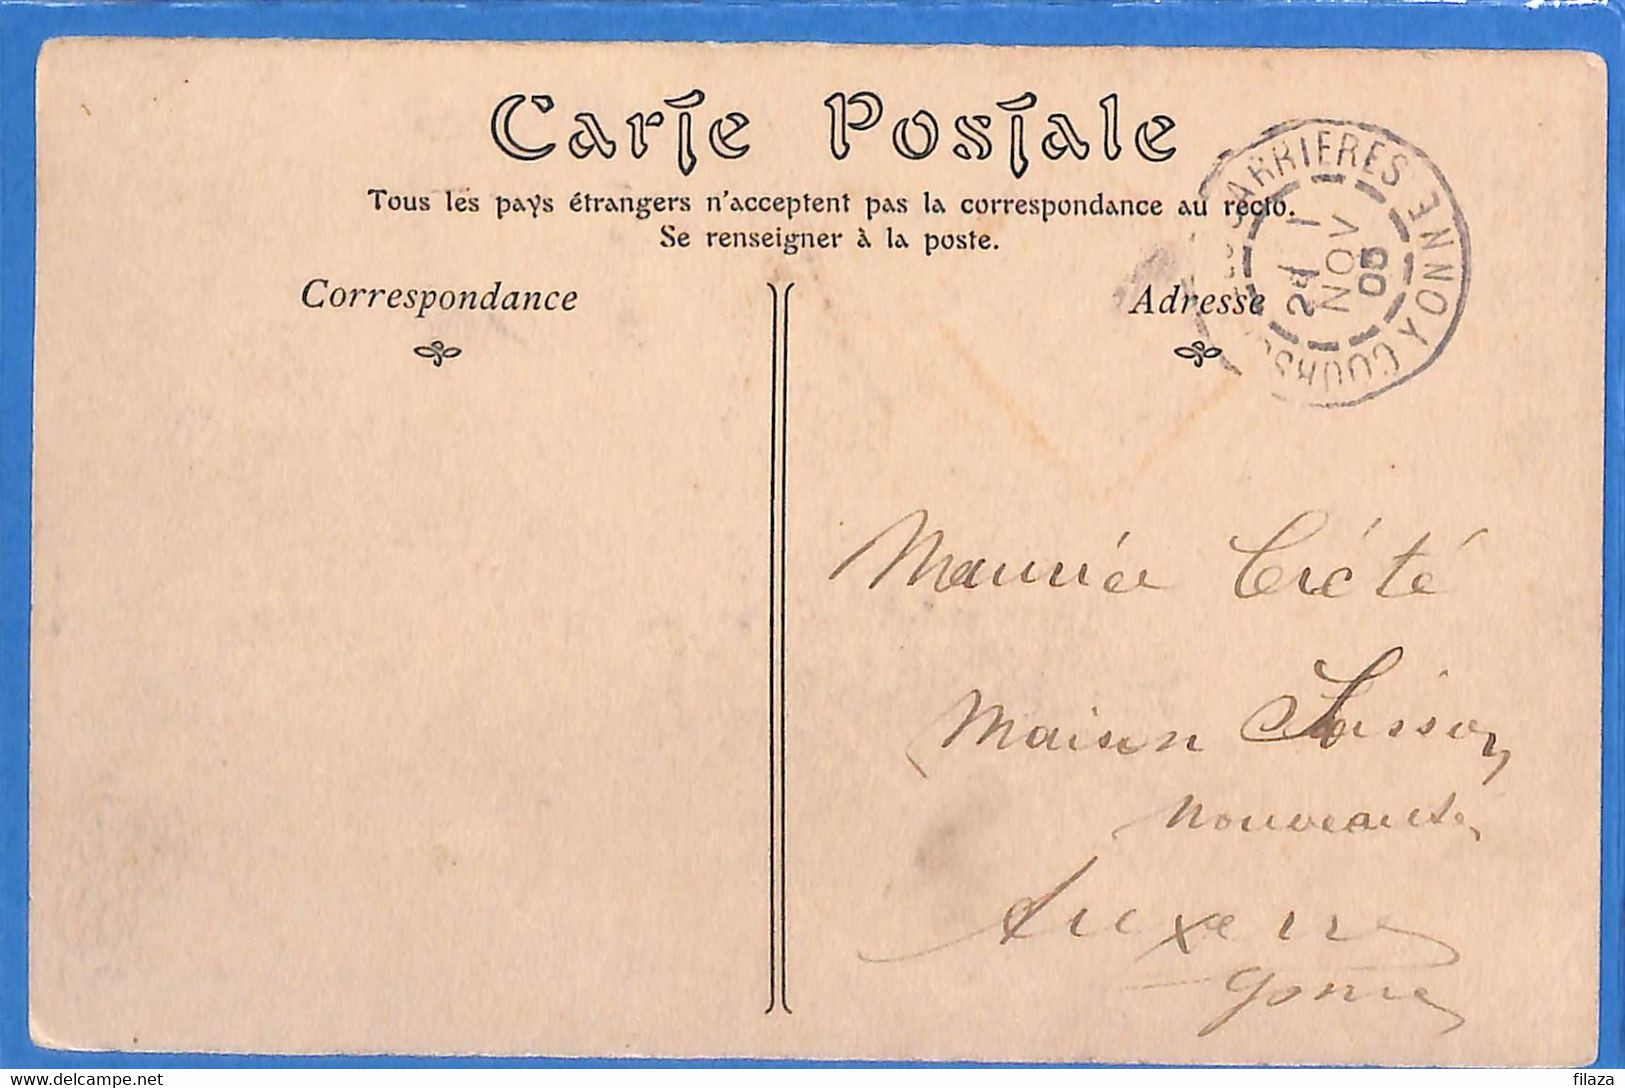 Carte Postale
Tous les pays étrangers n'acceptent pas la correspondance au recto.
Se renseigner à la poste.
Correspondance
Adresse
CARRIERES YONNE
2E 1
NOV
05
Maurice Crété
Maison Soisson
Nouveautés
Auxerre
Yonne
delcampe.net
filaza